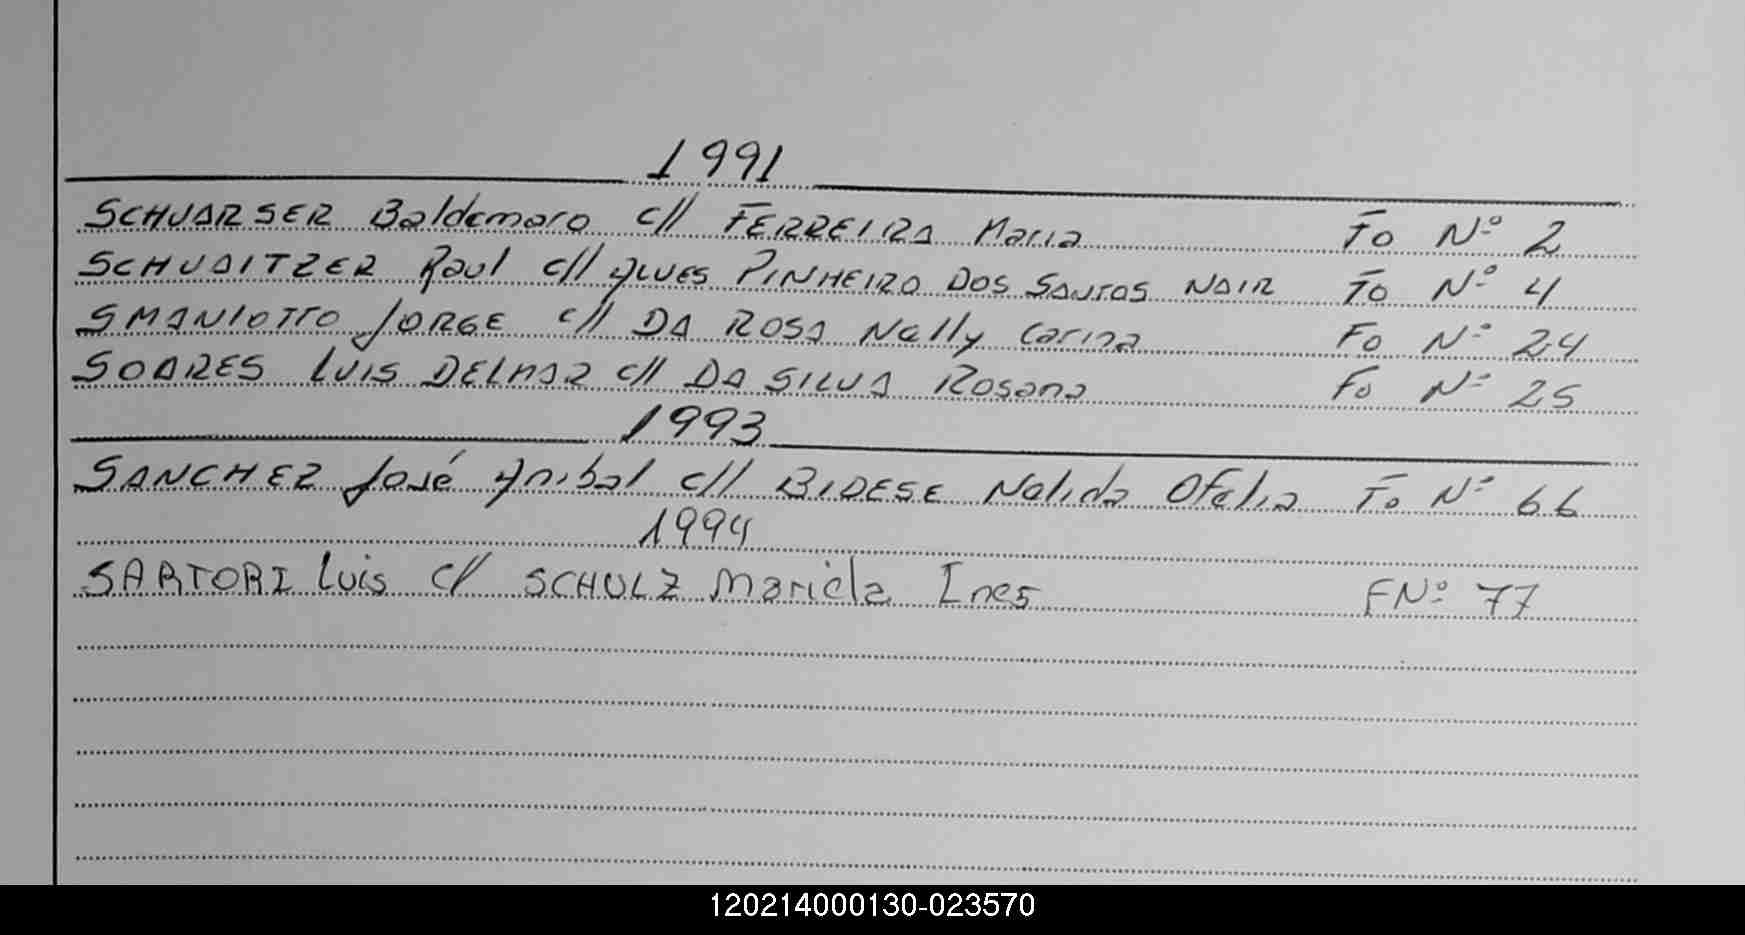 1991
SCHUARSER Baldemaro c// FERREIRA Maria Fo Nº 2
SCHUAITZER Raul c// ALVES PINHEIRO DOS SANTOS NAIR Fo Nº 4
SMANIOTTO JORGE c// DA ROSA Nelly Carina Fo Nº 24
SOARES LUIS DELMAR c// DA SILVA Rosana Fo Nº 25
1993
SANCHEZ José Anibal c// BIDESE Nelida Ofelia Fo Nº 66
1994
SARTORI Luis c/ SCHULZ Mariela Ines FNº 77
120214000130-023570